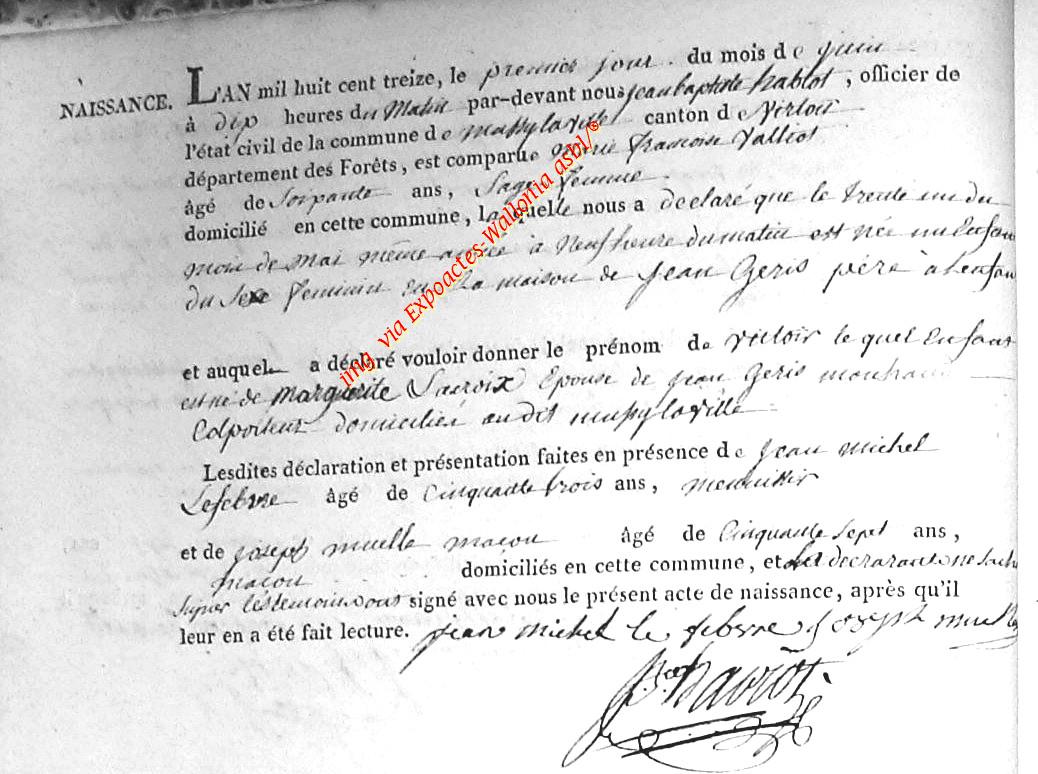 NAISSANCE.
L'AN mil huit cent treize, le premier jour du mois de juin
à dix heures du Matin par-devant nous jean baptiste hablot, officier de
l'état civil de la commune de mussylaville canton de Virton
département des Forêts, est comparue marie francoise Valliot
âgé de Soixante ans, Sage femme
domicilié en cette commune, laquelle nous a declaré que le trente un du
mois de mai même année à neuf heure du matin est née un Enfant
du Sexe feminin en la maison de jean Geris père à lenfan
et auquele a déclaré vouloir donner le prénom de victoir le quel Enfant
est né de Marguerite Lacroix Epouse de jean Geris marchand
Colporteur domicilié au dit mussylaville
Lesdites déclaration et présentation faites en présence de jean michel
Lefebvre âgé de Cinquante trois ans, menuisier
et de joseph muelle maçon âgé de Cinquante Sept ans,
maçon domiciliés en cette commune, et la declarante ne sachant
signer les temoins ont signé avec nous le présent acte de naissance, après qu'il
leur en a été fait lecture. jean michel le febvre joseph muelle
hablot
img via Expoactes-Wallonia asbl/©